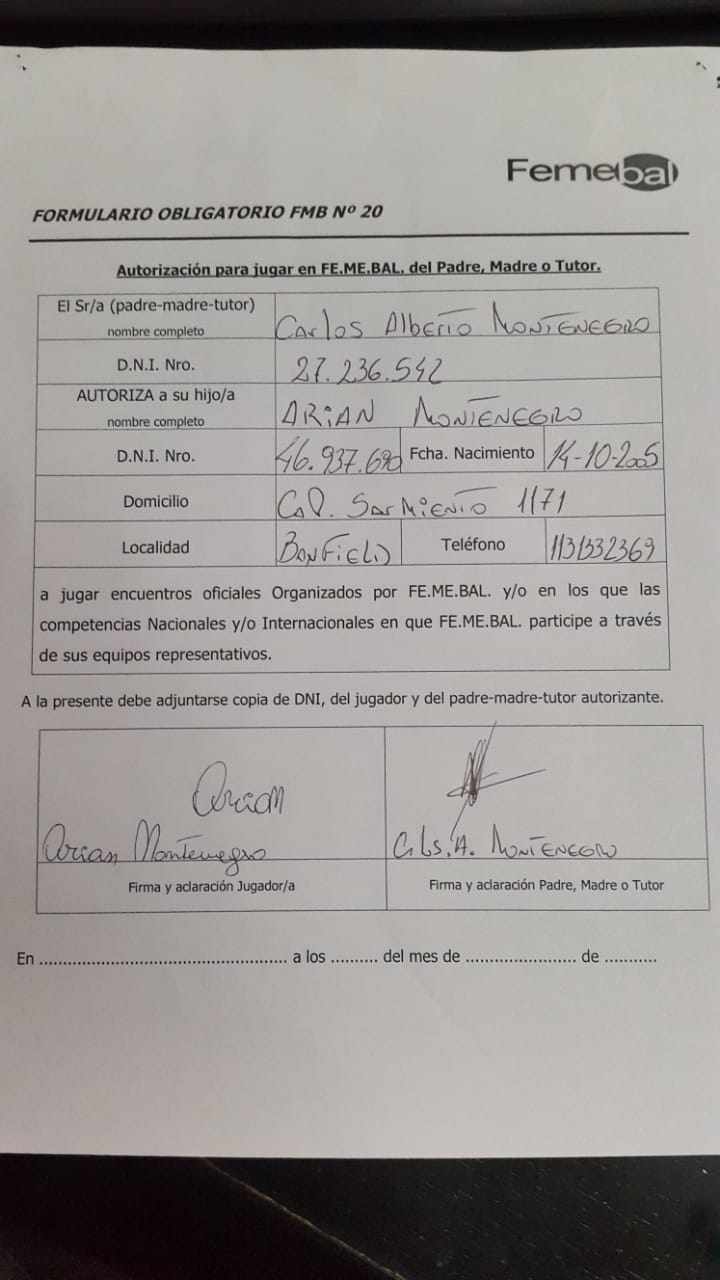 Femebal
FORMULARIO OBLIGATORIO FMB Nº 20
Autorización para jugar en FE.ME.BAL. del Padre, Madre o Tutor.
El Sr/a (padre-madre-tutor)
nombre completo
Carlos Alberto MONTENEGRO
D.N.I. Nro. 27.236.542
AUTORIZA a su hijo/a
nombre completo
ARiAN MONTENEGRO
D.N.I. Nro. 46.937.690 Fcha. Nacimiento 14-10-2005
Domicilio Sarmiento 1171
Localidad BanFielD Teléfono 1131332369
a jugar encuentros oficiales Organizados por FE.ME.BAL. y/o en los que las
competencias Nacionales y/o Internacionales en que FE.ME.BAL. participe a través
de sus equipos representativos.
A la presente debe adjuntarse copia de DNI, del jugador y del padre-madre-tutor autorizante.
Arian
Arian Montenegro
MONTENEGRO
Firma y aclaración Jugador/a
Firma y aclaración Padre, Madre o Tutor
En .................................................... a los .......... del mes de ....................... de ...........